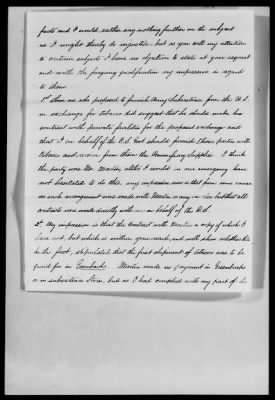 facts and I would rather say nothing further on the subject
as I might thereby do injustice but as you call my attention
to certain subjects I have no objection to state at your request
and with the forgoing qualification my impressions in regard
to them
1st Some one who proposed to furnish Army Subsistence from the U.S.
in exchange for Tobacco did suggest that he should make his
contract with private parties for the proposed exchange and
that I on behalf of the C.S. Govt should furnish those parties with
Tobacco and receive from them the Commissary Supplies. I think
the party was Mr. Martin, altho I would in our emergency have
not hesitated to do this, my impression now is that from some cause
no such arrangement was made with Martin or any one else but that all
contracts were made directly with me on behalf of the C.S.
2d My impression is that the Contract with Martin a copy of which I
have not, but which is within your reach, and will show whether this
is the fact, stipulated that the first shipment of tobacco was to be
paid for in Greenbacks. Martin made no payment in Greenbacks
or in subsistence Stores, but as I had complied with my part of the